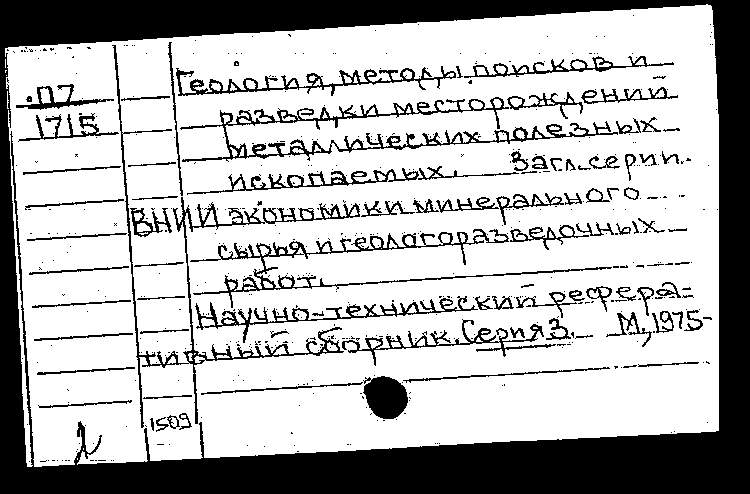 П7
1715
Геология, методы поисков и
разведки месторождений
металлических полезных
ископаемых. Загл. серии.
ВНИИ экономики минерального
сырья и геологоразведочных
работ.
Научно-технический рефера=
тивный сборник. Серия 3. М., 1975-
1509